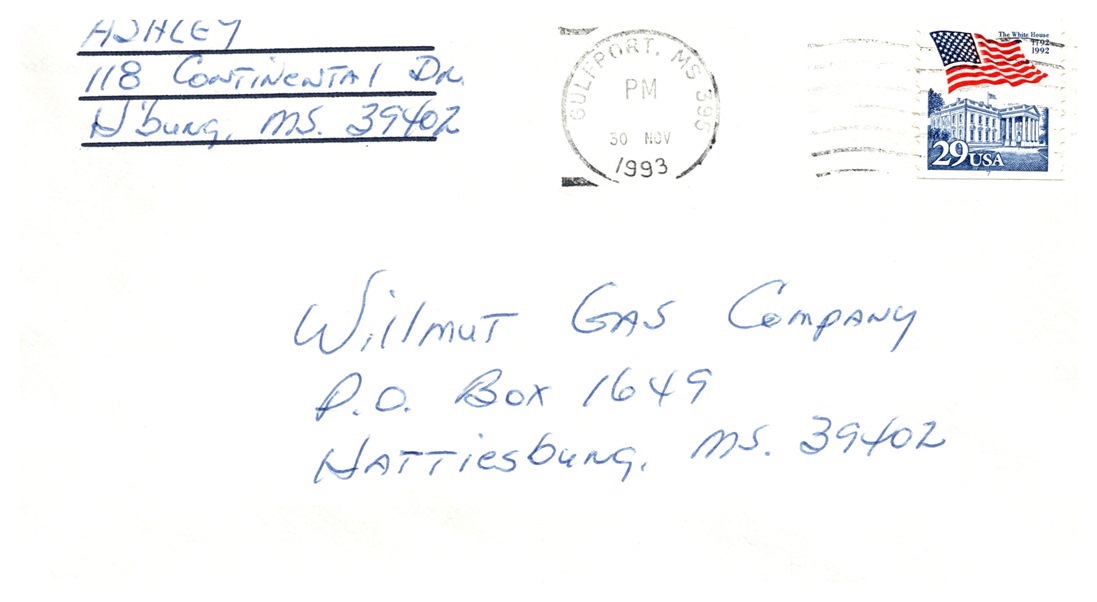 ASHLEY
118 Continental Dr.
H'burg, MS. 39402
GULFPORT, MS 395
PM
30 NOV
1993
The White House
1792
1992
29 USA
Willmut Gas Company
P.O. Box 1649
Hattiesburg, MS. 39402